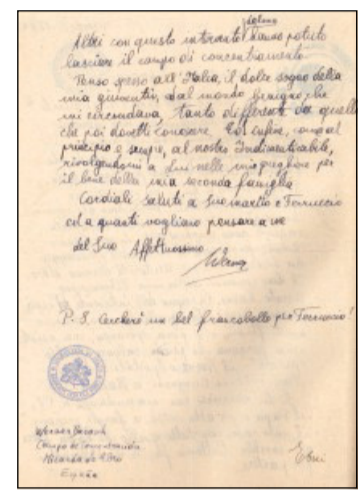 alcuni
Altri con questo intirante hanno potuto
lasciare il campo di concentramento.
Penso spesso all'Italia, il dolce sogno della
mia gioventù, dal mondo benigno che
mi circondava, tanto differente da quello
che poi dovetti conoscere. Ed infine, come al
principio e sempre, al nostro Indimenticabile,
rivolgendomi a Lui nelle mie preghiere per
il bene della mia seconda famiglia.
Cordiali saluti a Suo marito e Ferruccio
ed a quanti vogliano pensare a me
del Suo Affettuosissimo
Werner
P. S. Cercherò un bel francobollo per Ferruccio!
Werner
Campo de Concentración
Miranda de Ebro
España